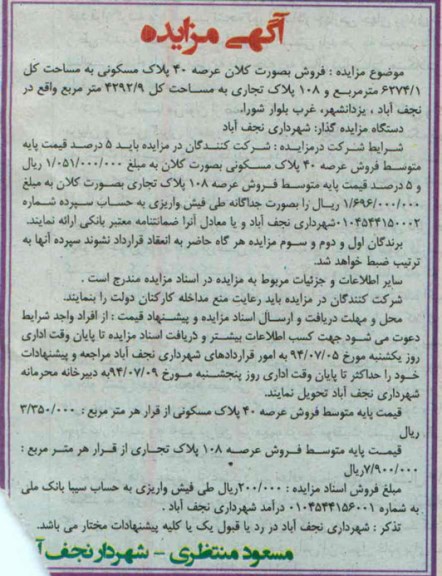 آگهی مزایده
موضوع مزایده : فروش بصورت کلان عرصه ۴۰ پلاک مسکونی به مساحت کل
۶۲۷۴/۱ مترمربع و ۱۰۸ پلاک تجاری به مساحت کل ۴۲۹۲/۹ متر مربع واقع در
نجف آباد ، یزدانشهر، غرب بلوار شورا.
دستگاه مزایده گذار: شهرداری نجف آباد
شرایط شرکت درمزایده : شرکت کنندگان در مزایده باید ۵ درصد قیمت پایه
متوسط فروش عرصه ۴۰ پلاک مسکونی بصورت کلان به مبلغ ۱/۰۵۱/۰۰۰/۰۰۰ ریال
و ۵ درصد قیمت پایه متوسط فروش عرصه ۱۰۸ پلاک تجاری بصورت کلان به مبلغ
۱/۶۹۶/۰۰۰/۰۰۰ ریال را بصورت جداگانه طی فیش واریزی به حساب سپرده شماره
۰۱۰۴۵۴۴۱۵۰۰۰۲شهرداری نجف آباد و یا معادل آنرا ضمانتنامه معتبر بانکی ارائه نمایند.
برندگان اول و دوم و سوم مزایده هر گاه حاضر به انعقاد قرارداد نشوند سپرده آنها به
ترتیب ضبط خواهد شد.
سایر اطلاعات و جزئیات مربوط به مزایده در اسناد مزایده مندرج است .
شرکت کنندگان در مزایده باید رعایت منع مداخله کارکنان دولت را بنمایند.
محل و مهلت دریافت و ارسال اسناد مزایده و پیشنهاد قیمت : از افراد واجد شرایط
دعوت می شود جهت کسب اطلاعات بیشتر و دریافت اسناد مزایده تا پایان وقت اداری
روز یکشنبه مورخ ۹۴/۰۷/۰۵ به امور قراردادهای شهرداری نجف آباد مراجعه و پیشنهادات
خود را حداکثر تا پایان وقت اداری روز پنجشنبه مورخ ۹۴/۰۷/۰۹به دبیرخانه محرمانه
شهرداری نجف آباد تحویل نمایند.
قیمت پایه متوسط فروش عرصه ۴۰ پلاک مسکونی از قرار هر متر مربع : ۳/۳۵۰/۰۰۰
ریال
قیمت پایه متوسط فروش عرصه ۱۰۸ پلاک تجاری از قرار هر متر مربع :
۷/۹۰۰/۰۰۰ریال
مبلغ فروش اسناد مزایده : ۲۰۰/۰۰۰ریال طی فیش واریزی به حساب سیبا بانک ملی
به شماره ۰۱۰۴۵۴۴۱۵۶۰۰۱ درآمد شهرداری نجف آباد .
تذکر : شهرداری نجف آباد در رد یا قبول یک یا کلیه پیشنهادات مختار می باشد.
مسعود منتظری - شهردار نجف آ